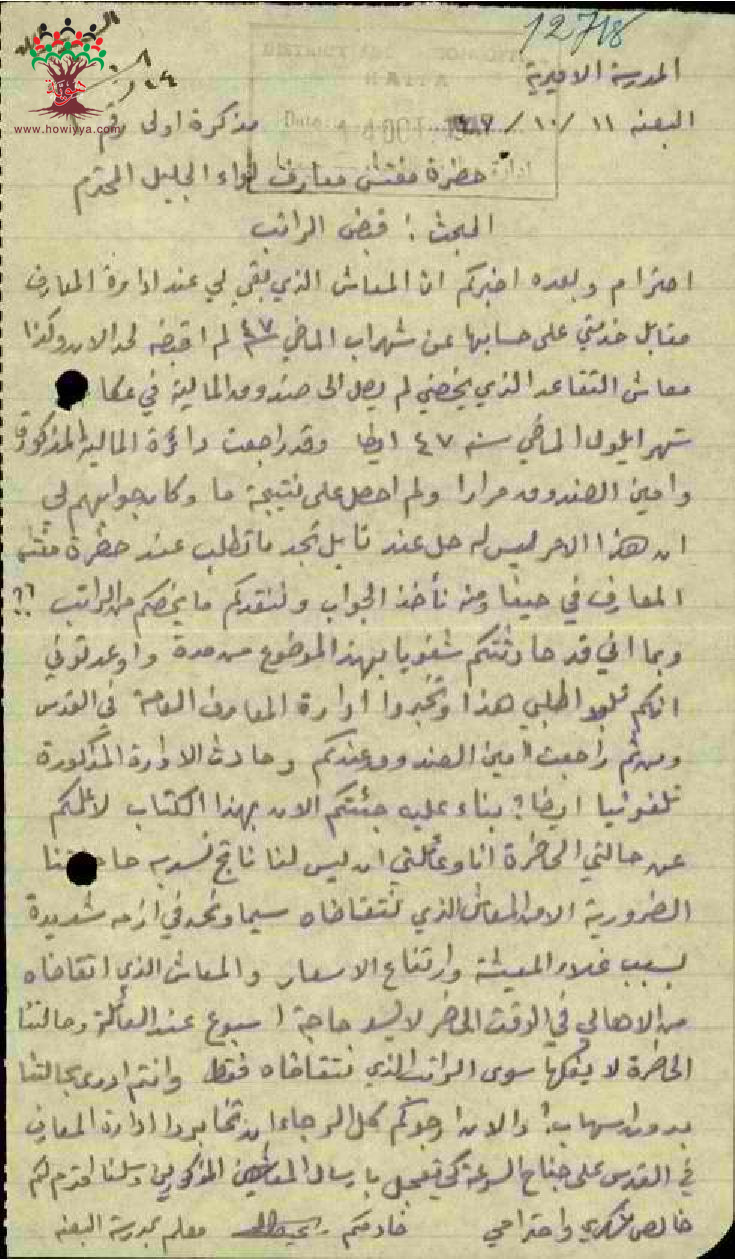 12718
www.howiyya.com
DISTRICT
HAIFA
Date: 14 OCT 1947
المدرسة الاميرية
البعنه ١١ / ١٠ / ٤٧ مذكرة اولى رقم
حضرة مفتش معارف لواء الجليل المحترم
المبحث : قبض الراتب
احترام وبعده اخبركم ان المعاش الذي بقي لي عند ادارة المعارف
مقابل خدمتي على حسابها عن شهر اب الماضي سنة ٤٧ لم اقبضه لحد الان وكذا
معاش التقاعد الذي يخصني لم يصل الى صندوق المالية في عكا
شهر ايلول الماضي سنه ٤٧ ايضا وقد راجعت دائرة المالية المذكورة
وامين الصندوق مرارا ولم احصل على نتيجة ما وكان جوابهم لي
ان هذا الامر ليس له حل عندنا بل تجد ما تطلب عند حضرة مفتش
المعارف في حيفا ومنه نأخذ الجواب وننقدكم ما يخصكم من الراتب ؟؟
وبما اني قد حادثتكم شفويا بهذا الموضوع من مدة واوعدتوني
انكم تلبوا طلبي هذا وتخبروا ادارة المعارف العامة في القدس
ومن ثم راجعت امين الصندوق عندكم وحادث الادارة المذكورة
تلفونيا ايضا ؟ بناء عليه جئتكم الان بهذا الكتاب لاعلمكم
عن حالتي الحاضرة انا وعائلتي ان ليس لنا ناتج نسد به حاجتنا
الضرورية الا من المعاش الذي نتقاضاه سيما ونحن في ازمه شديدة
بسبب غلاء المعيشة وارتفاع الاسعار والمعاش الذي اتقاضاه
من الاهالي في الوقت الحاضر لا يسد حاجة اسبوع عند العائلة وحالتنا
الحاضرة لا يفكها سوى الراتب الذي نتقاضاه فقط وانتم ادرى بحالتنا
بدون اسهاب ؟ والان ارجوكم كل الرجاء ان تخابروا ادارة المعارف
في القدس على جناح السرعة كي تعجل بارسال المعاشين المذكورين وسلفا اقدم لكم
خالص شكري واحترامي خادمكم معلم بمدرسة البعنه